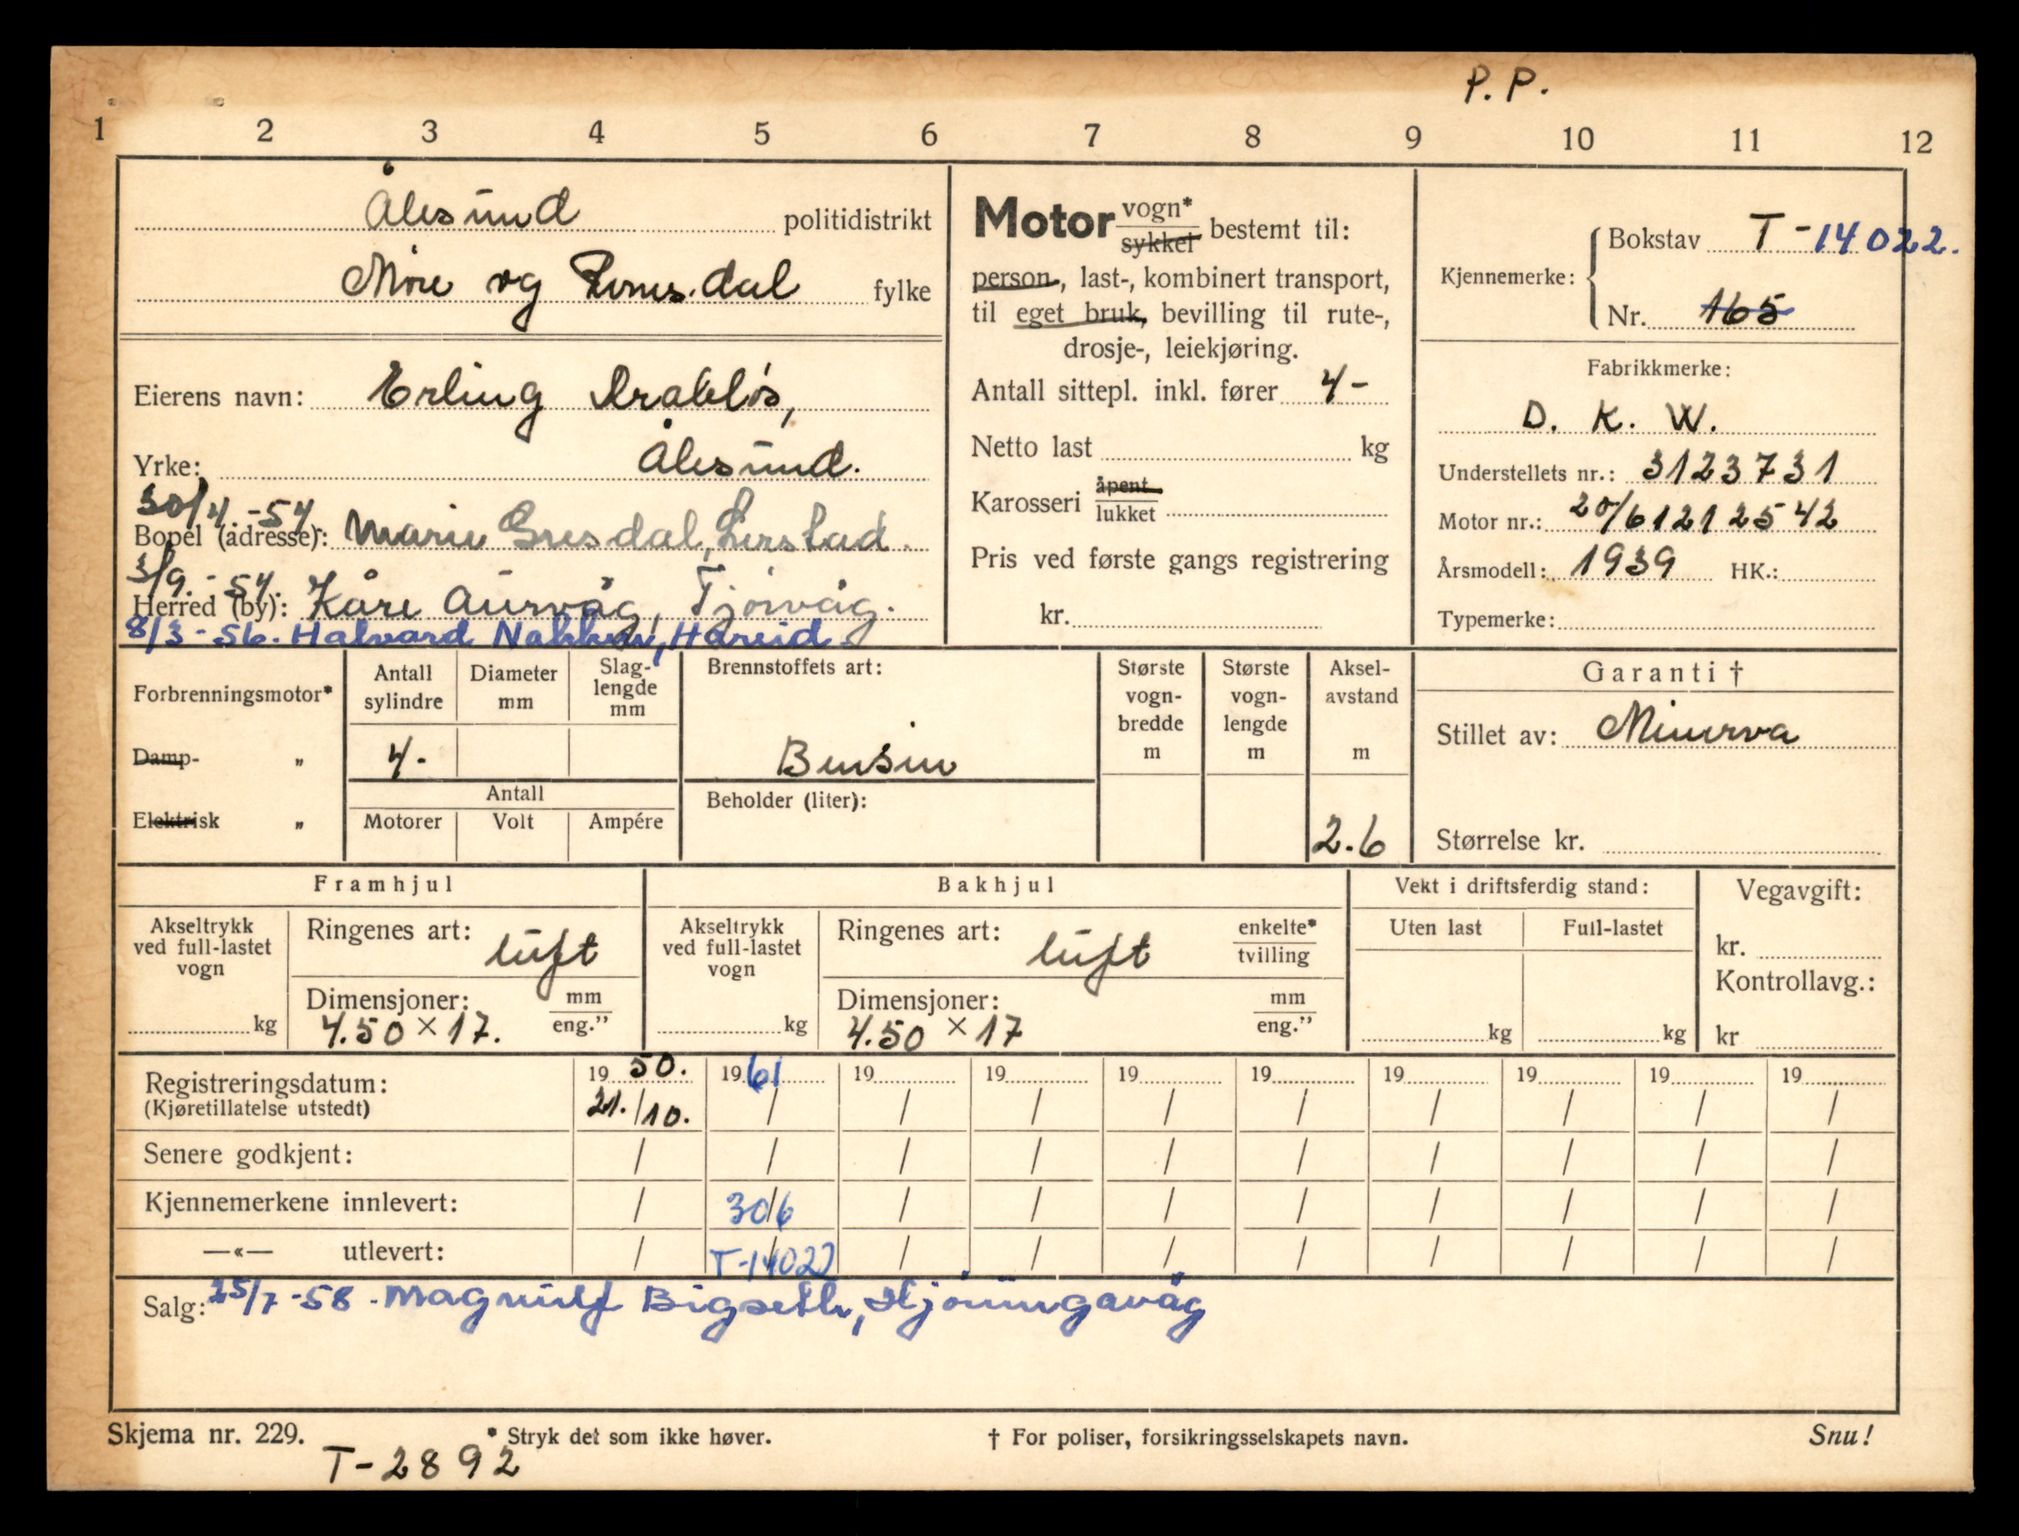 P. P.
1 2 3 4 5 6 7 8 9 10 11 12
Ålesund politidistrikt
Møre og Romsdal fylke
Eierens navn: Erling Drabløs,
Yrke: Ålesund.
30/4.-54.
Bopel (adresse): Marie Gresdal, Lerstad.
3/9.-54.
Herred (by): Kåre Aurvåg, Tjørvåg.
8/3-56. Halvard Nakken, Hareid
Motor vogn* bestemt til:
sykkel
person-, last-, kombinert transport,
til eget bruk, bevilling til rute-,
drosje-, leiekjøring.
Antall sittepl. inkl. fører 4-
Netto last kg
Karosseri åpent
lukket
Pris ved første gangs registrering
kr.
Kjennemerke: Bokstav T-14022.
Nr. 165
Fabrikkmerke:
D. K. W.
Understellets nr.: 3123731
Motor nr.: 20/61212542
Årsmodell: 1939 HK.:
Typemerke:
Forbrenningsmotor*
Damp- „
Elektrisk „
Antall sylindre Diameter mm Slaglengde mm
4.
Antall
Motorer Volt Ampére
Brennstoffets art:
Bensin
Beholder (liter):
Største vogn-bredde m
Største vogn-lengde m
Aksel-avstand m
2.6
Garanti †
Stillet av: Minerva
Størrelse kr.
Framhjul
Akseltrykk
ved full-lastet
vogn
kg
Ringenes art: luft
Dimensjoner: mm
4.50 × 17. eng.”
Bakhjul
Akseltrykk
ved full-lastet
vogn
kg
Ringenes art: luft enkelte*
tvilling
Dimensjoner: mm
4.50 × 17 eng.”
Vekt i driftsferdig stand:
Uten last Full-lastet
kg kg
Vegavgift:
kr.
Kontrollavg.:
kr
Registreringsdatum: 19 50. 19 61 19 19 19 19 19 19 19 19
(Kjøretillatelse utstedt) 21./10. / / / / / / / / /
Senere godkjent: / / / / / / / / / /
Kjennemerkene innlevert: / 30/6 / / / / / / / /
—«— utlevert: / T-14022 / / / / / / / /
Salg: 25/7-58. Magnulf Bigseth, Hjørungavåg
Skjema nr. 229. * Stryk det som ikke høver. † For poliser, forsikringsselskapets navn. Snu!
T-2892